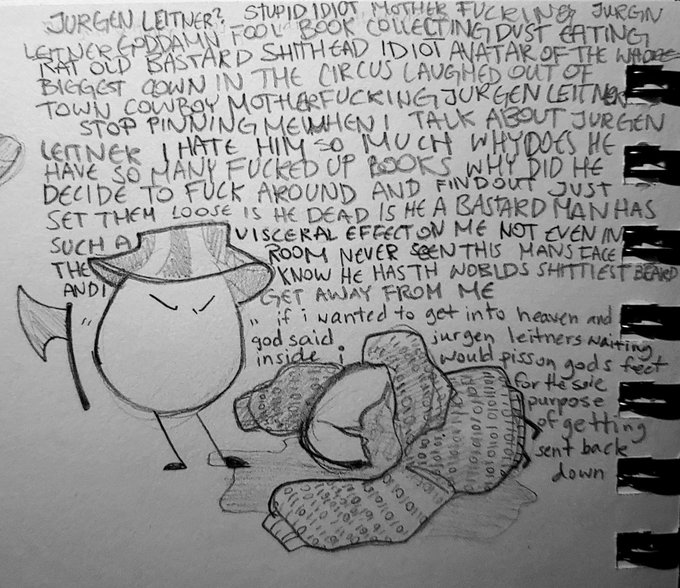 JURGEN LEITNER? STUPID IDIOT MOTHER FUCKING JURGEN
LEITNER GODDAMN FOOL BOOK COLLECTING DUST EATING
RAT OLD BASTARD SHITHEAD IDIOT AVATAR OF THE WHORE
BIGGEST CLOWN IN THE CIRCUS LAUGHED OUT OF
TOWN COWBOY MOTHERFUCKING JURGEN LEITNER
STOP PINNING ME WHEN I TALK ABOUT JURGEN
LEITNER I HATE HIM SO MUCH WHY DOES HE
HAVE SO MANY FUCKED UP BOOKS WHY DID HE
DECIDE TO FUCK AROUND AND FIND OUT JUST
SET THEM LOOSE IS HE DEAD IS HE A BASTARD MAN HAS
SUCH A VISCERAL EFFECT ON ME NOT EVEN IN
THE ROOM NEVER SEEN THIS MANS FACE
AND I KNOW HE HAS TH WORLDS SHITTIEST BEARD
GET AWAY FROM ME
if i wanted to get into heaven and
god said jurgen leitners waiting
inside i would piss on gods feet
for the sole
purpose
of getting
sent back
down